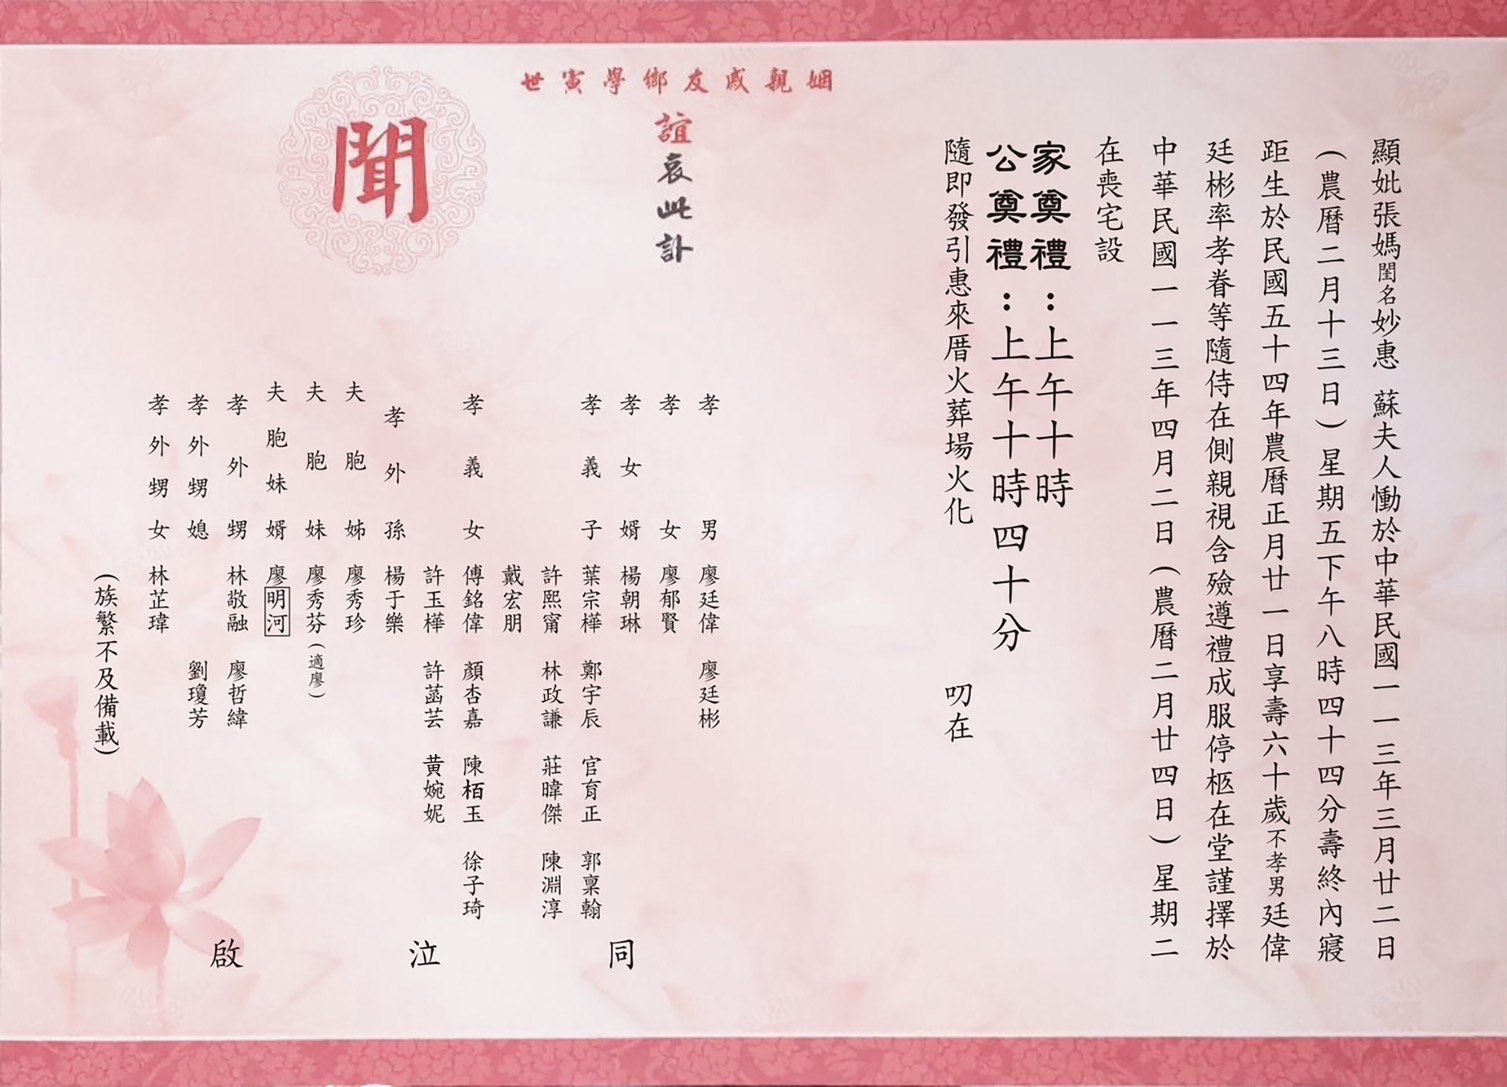 顯妣張媽閨名妙惠 蘇夫人慟於中華民國一一三年三月廿二日
(農曆二月十三日)星期五下午八時四十四分壽終內寢
距生於民國五十四年農曆正月廿一日享壽六十歲不孝男廷偉
廷彬率孝眷等隨侍在側親視含殮遵禮成服停柩在堂謹擇於
中華民國一一三年四月二日(農曆二月廿四日)星期二
在喪宅設
家奠禮:上午十時
公奠禮:上午十時四十分
隨即發引惠來厝火葬場火化 叨在
姻親戚友鄉學寅世
誼哀此訃
聞
孝男 廖廷偉 廖廷彬
孝女 廖郁賢
孝女婿 楊朝琳
孝義子 葉宗樺 鄭宇辰 官育正 郭稟翰
許熙甯 林政謙 莊暐傑 陳淵淳
戴宏朋
孝義女 傅銘偉 顏杏嘉 陳栢玉 徐子琦
許玉樺 許菡芸 黃婉妮
孝外孫 楊于樂
夫胞姊 廖秀珍
夫胞妹 廖秀芬(適廖)
夫胞妹婿 廖明河
孝外甥 林敬融 廖哲緯
孝外甥媳 劉瓊芳
孝外甥女 林芷瑋
(族繁不及備載)
同泣啟